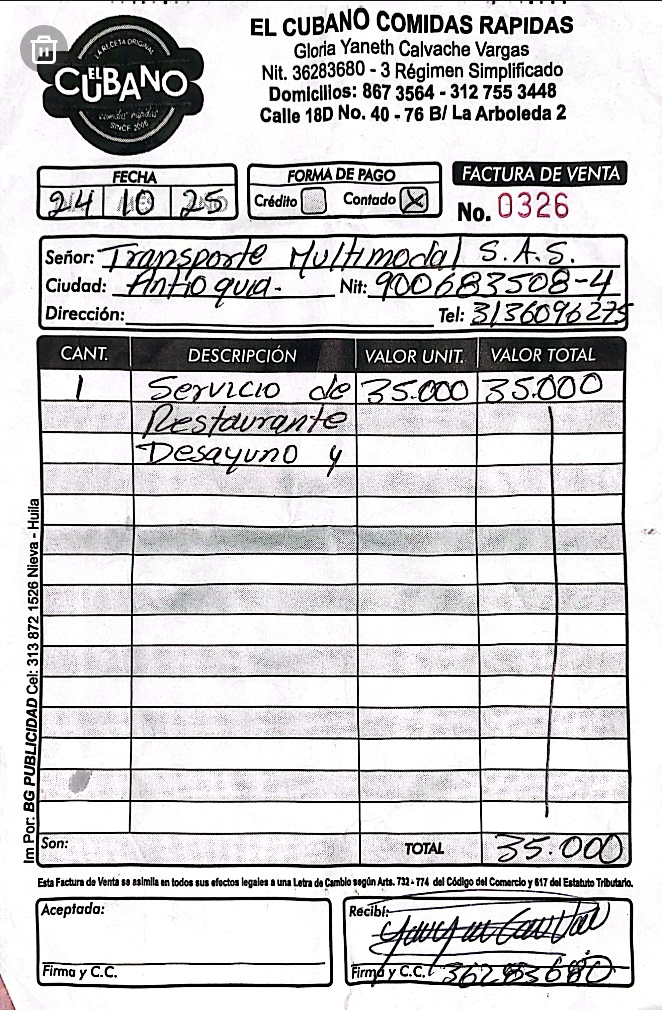 LA RECETA ORIGINAL
EL CUBANO
comidas rápidas
SINCE 2006
EL CUBANO COMIDAS RAPIDAS
Gloria Yaneth Calvache Vargas
Nit. 36283680 - 3 Régimen Simplificado
Domicilios: 867 3564 - 312 755 3448
Calle 18D No. 40 - 76 B/ La Arboleda 2
FECHA
24 10 25
FORMA DE PAGO
Crédito Contado X
FACTURA DE VENTA
No. 0326
Señor: Transporte Multimodal S.A.S.
Ciudad: Antioquia- Nit: 900683508-4
Dirección: Tel: 3136096275
CANT. DESCRIPCIÓN VALOR UNIT. VALOR TOTAL
1 Servicio de 35.000 35.000
Restaurante
Desayuno y
Son: TOTAL 35.000
Im Por: BG PUBLICIDAD Cel: 313 872 1526 Nieva - Huila
Esta Factura de Venta se asimila en todos sus efectos legales a una Letra de Cambio según Arts. 732 - 774 del Código del Comercio y 617 del Estatuto Tributario.
Aceptada:
Firma y C.C.
Recibí:
Firma y C.C. 36283680